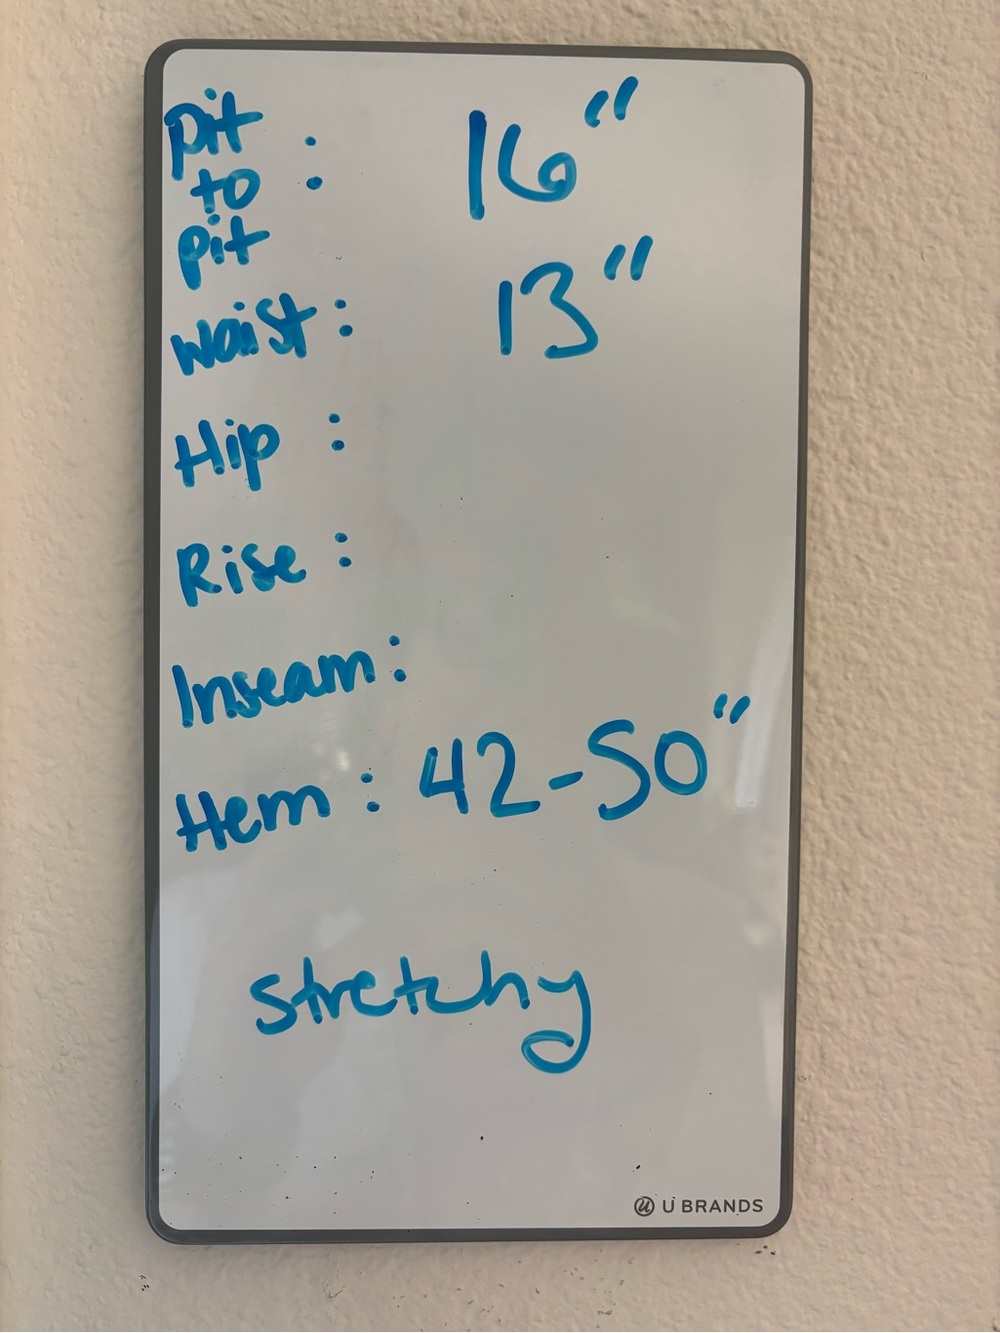 pit
to : 16"
pit
waist: 13"
Hip :
Rise :
Inseam:
Hem : 42-50"
stretchy
U BRANDS